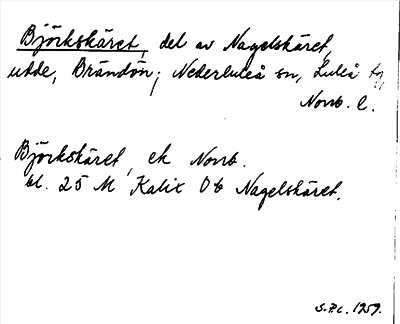 Björkskäret, del av Nagelskäret,
udde, Brändön; Nederluleå sn, Luleå tg,
Norrb. l.
Björkskäret, ek Norrb.
bl. 25 M Kalix Ob Nagelskäret.
S.P.C. 1959.